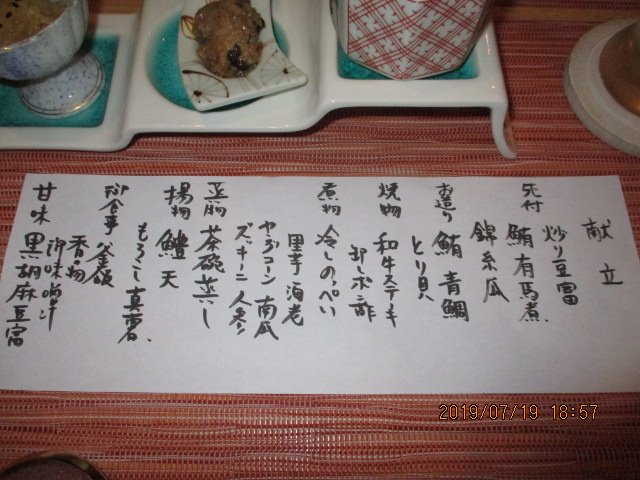 献立
先付 炒り豆富
鮪有馬煮、
錦糸瓜
お造り 鮪 青鯛
とり貝
焼物 和牛ステーキ
卸しポン酢
煮物 冷しのっぺい
里芋 海老
ヤングコーン 南瓜
ズッキーニ 人参
蒸物 茶碗蒸し
揚物 鱧天
もろこし真薯、
御食事 釜飯
香物
御味噌汁
甘味 黒胡麻豆富
2019/07/19 18:57